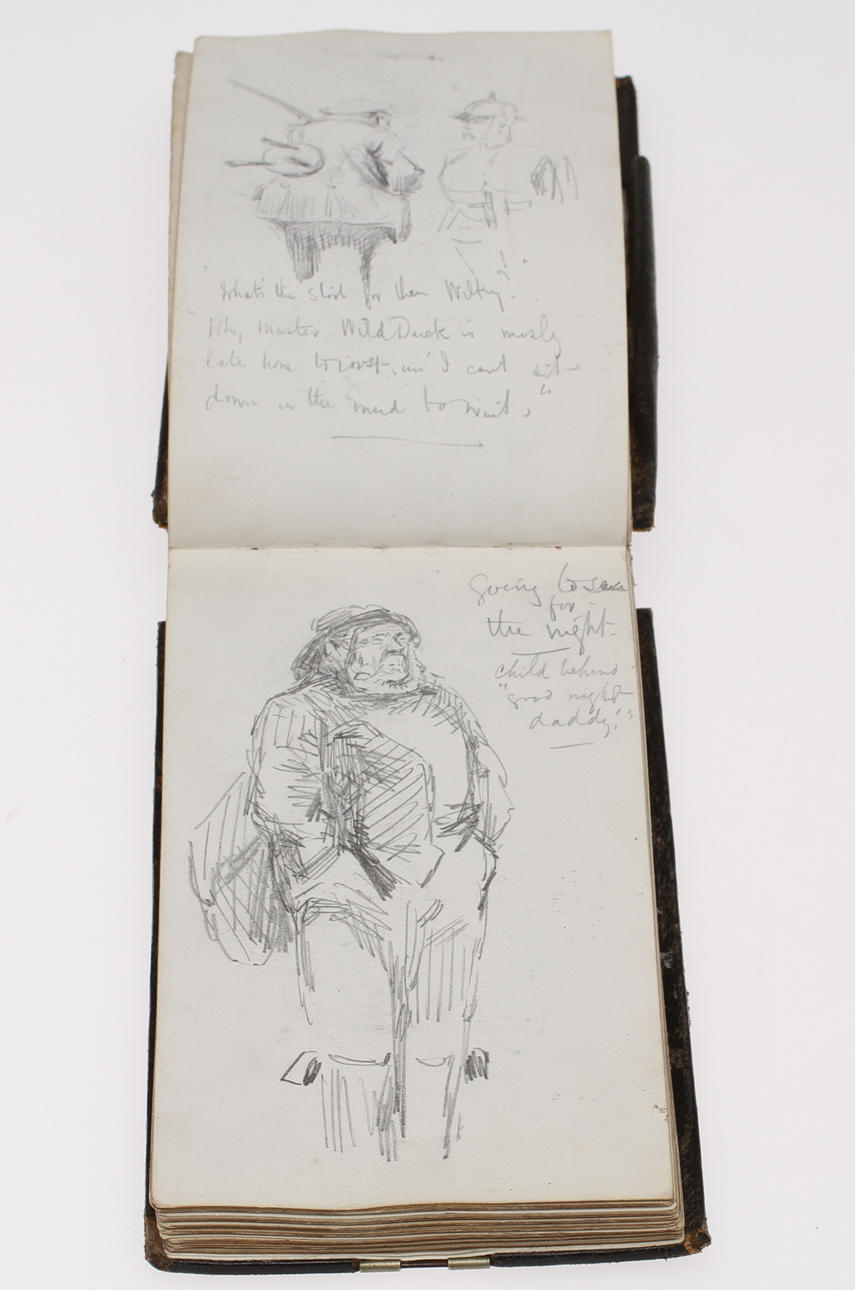 "What's the stool for then Wiltry?"
Why, master Wild Duck is mostly
late home to roost, an' I can't sit
down in the mud to wait,"
Going to sea
for
the night.
child behind
"good night
daddy!"